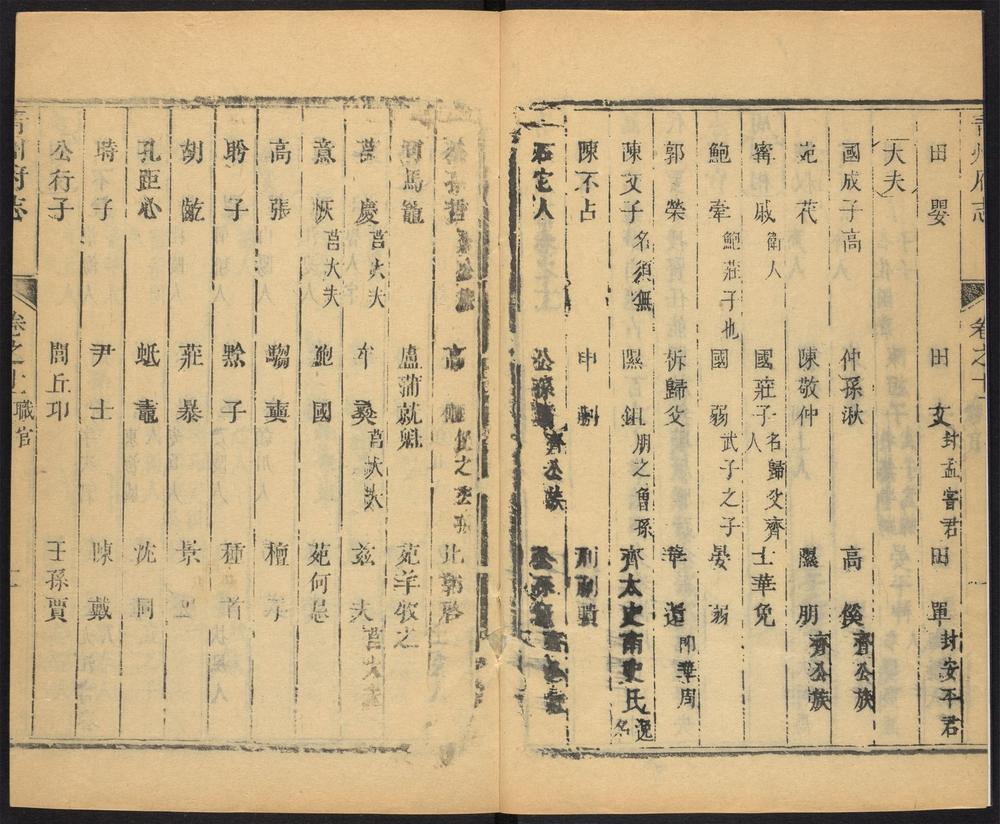 青州府志 卷之十
田嬰 田文封孟嘗君 田單封安平君
大夫
國成子高 仲孫湫 高傒齊公族
陳敬仲 隰朋齊公族
甯戚衛人 國莊子名歸父齊人 士華免
鮑牽鮑莊子也 國弱武子之子 晏弱
郭榮 析歸父 華還即華周
陳文子名須無 隰鉏朋之曾孫 齊太史南史氏逸名
陳不占 申蒯
石它人 公孫 齊公族
高
司馬竈 盧蒲就魁 苑羊牧之
莒慶莒大夫 牟夷莒大夫 茲夫莒大夫
意恢莒大夫 鮑國 苑何忌
高張 騶奭 檀子
盼子 黔子 種首
胡齕 莊暴 景丑
孔距心 蚳鼃 沈同
時子 尹士 陳戴
公行子 閭丘卭 王孫賈
青州府志 卷之十 職官